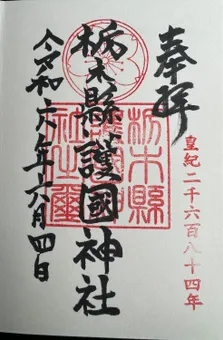 奉拝
皇紀二千六百八十四年
栃木縣護國神社
令和六年 月四日
栃木縣
社之璽